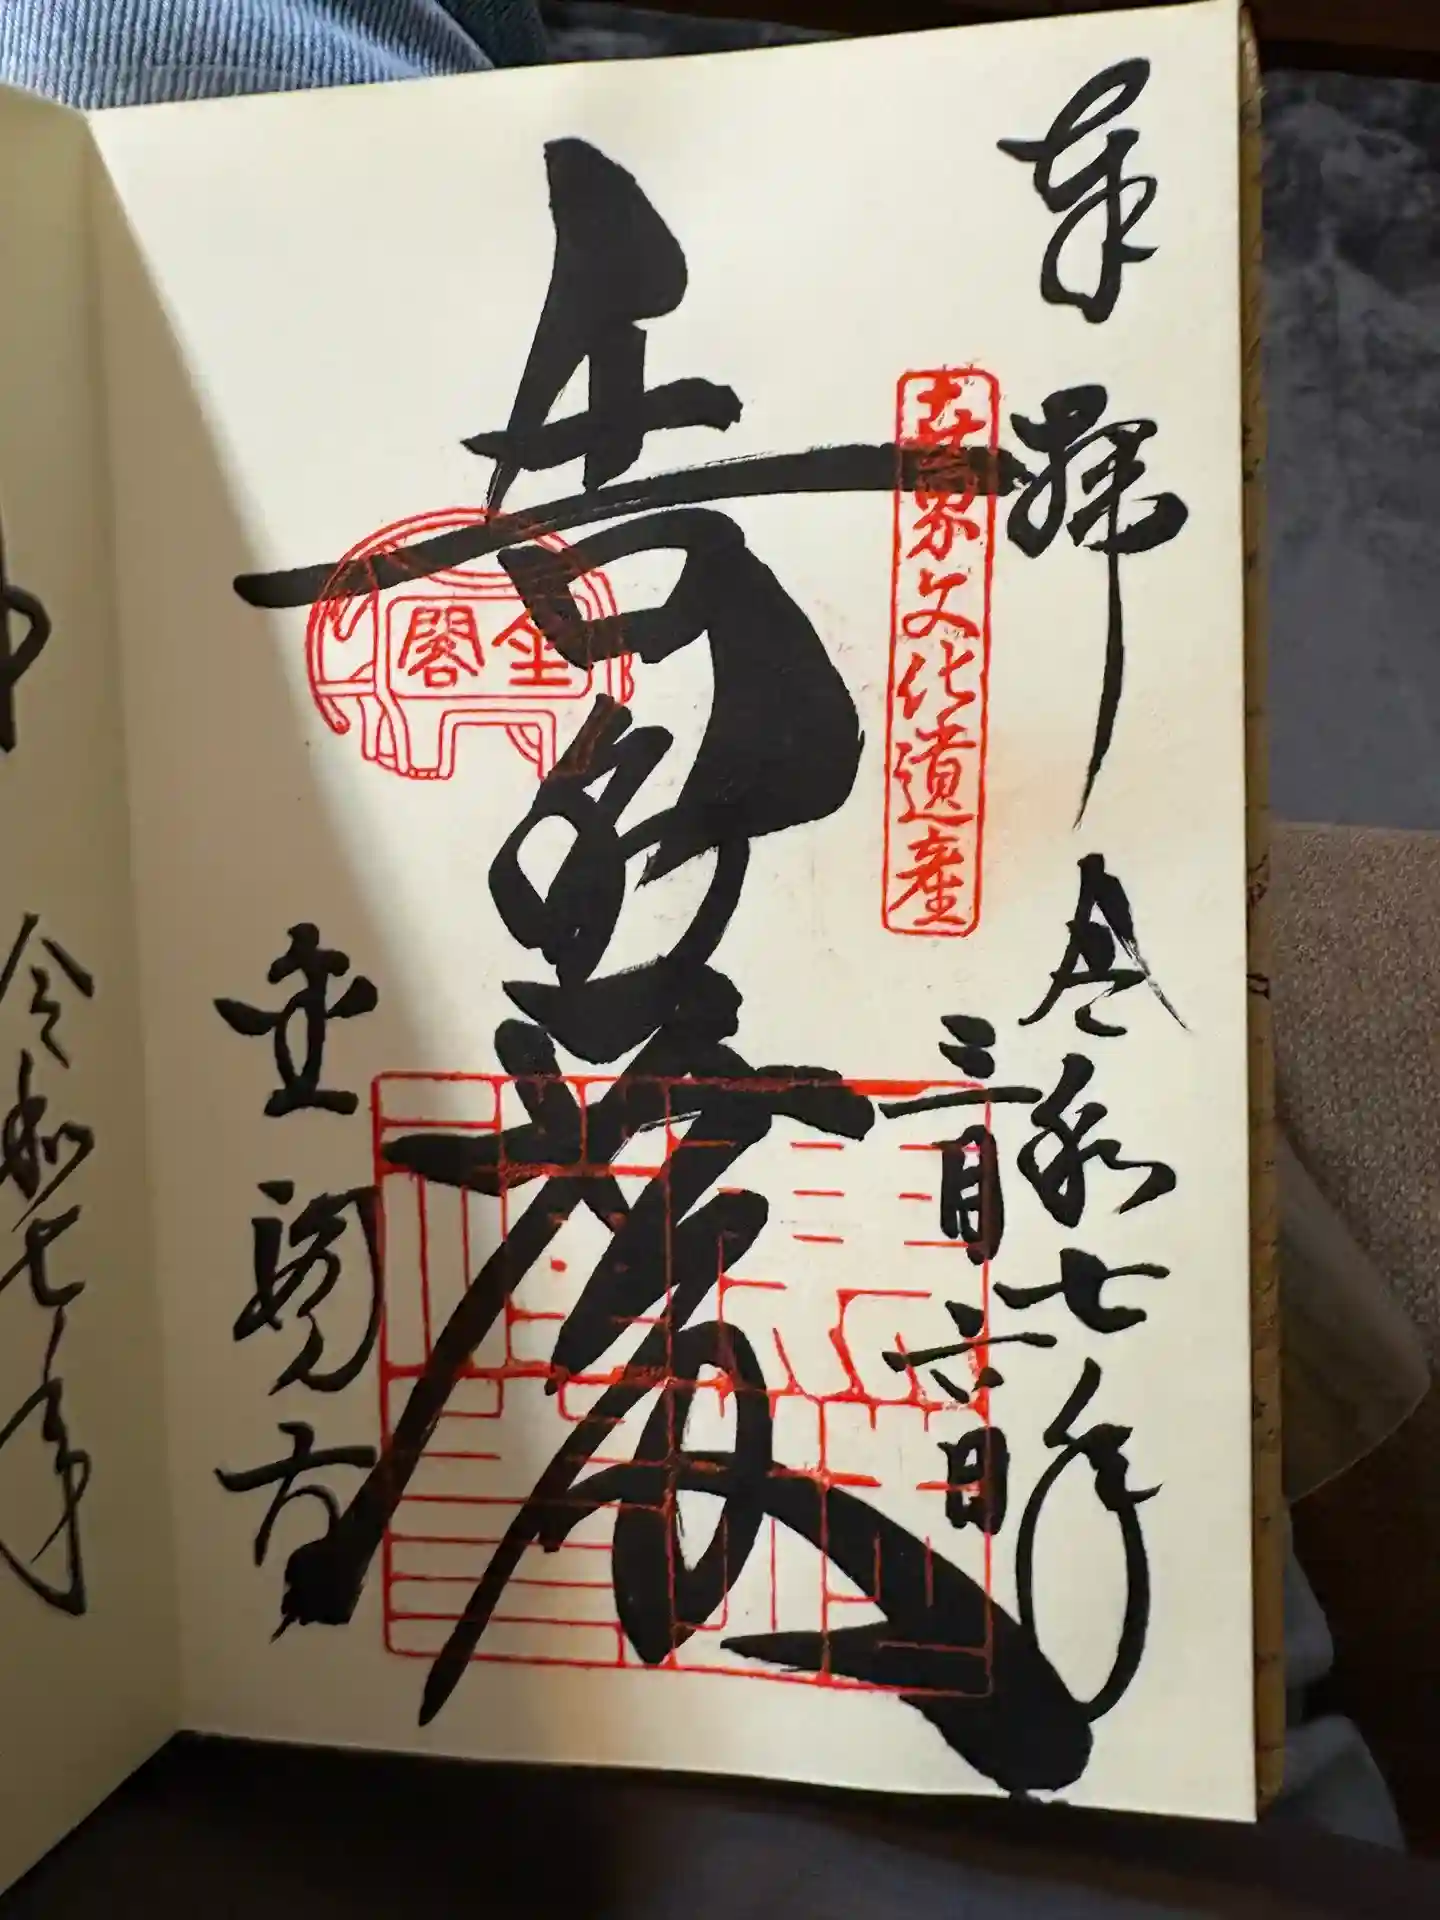 奉拝 令和七年
三月六日
世界文化遺産
舎利殿
金閣
金閣寺
令和七年